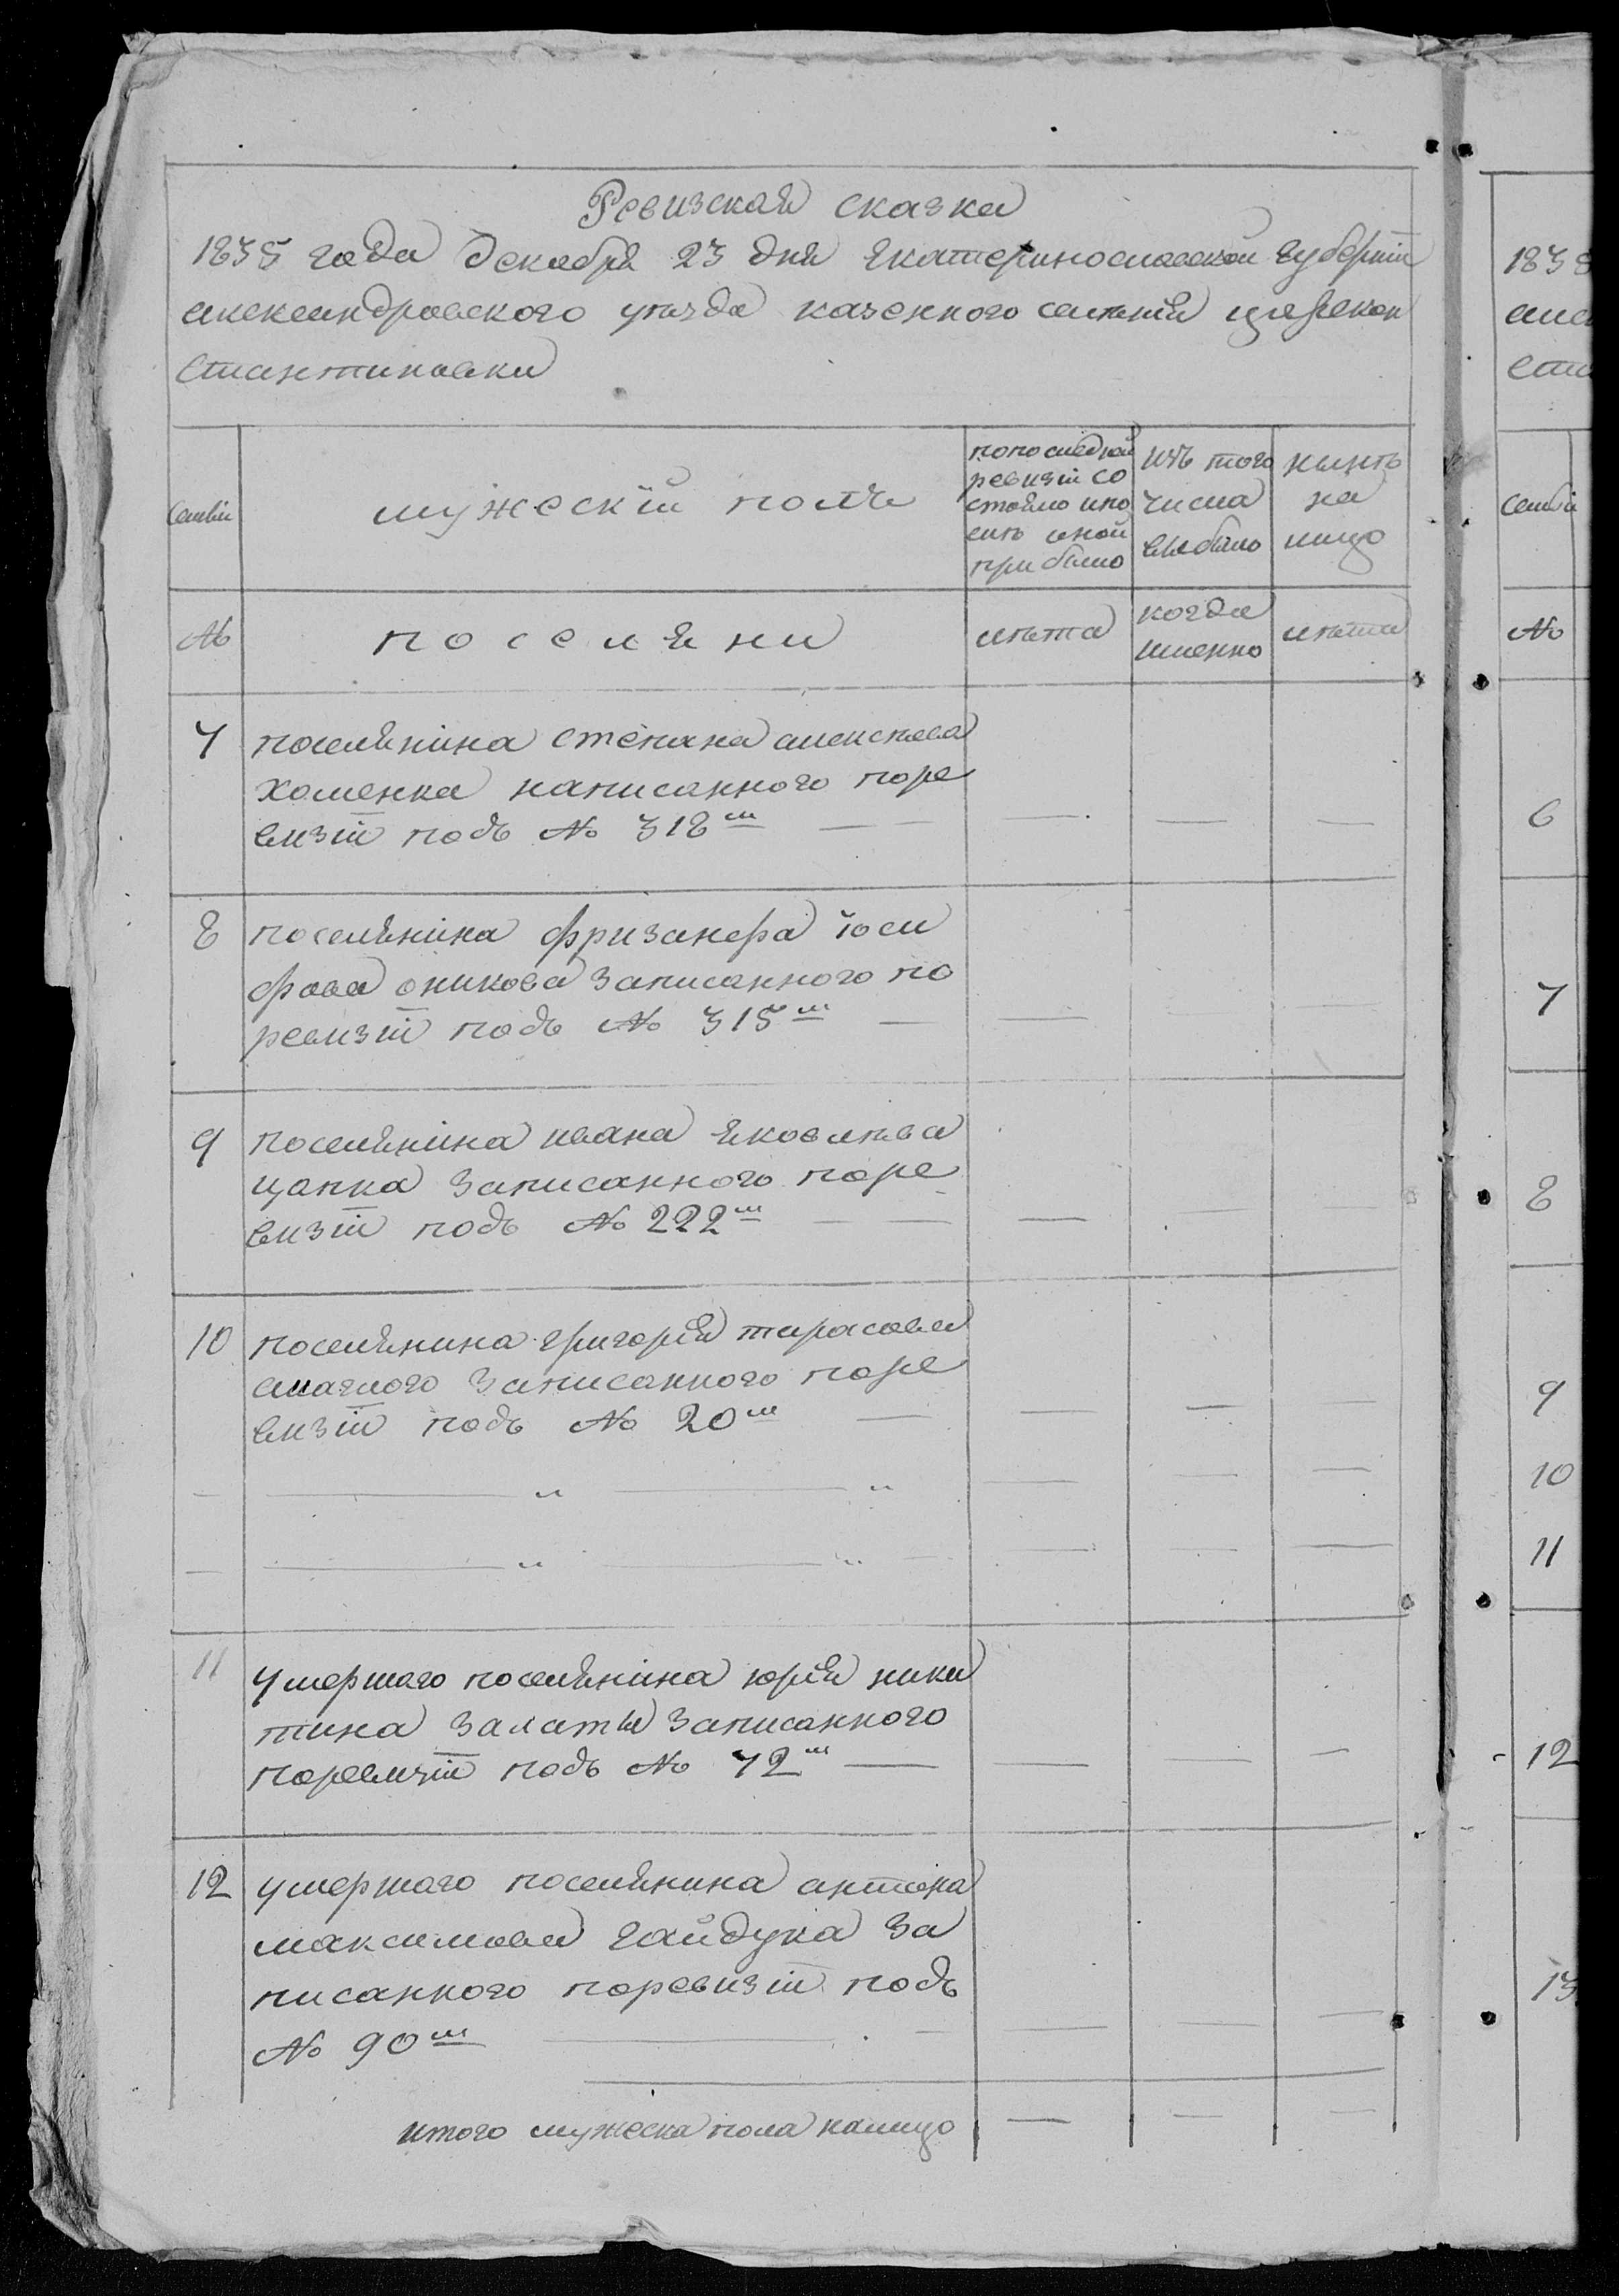 Ревизская сказка
1835 года декабря 23 дня екатеринославской губернiи
александровского уѣзда казенного селенiя царекон
стантиновки
семьи
мужескiй полъ
попоследней
ревизiи со
стояло и по
слѣ оной
прибыло
изъ того
числа
выбыло
нынѣ
на
лицо
№
поселяни
лѣта
когда
именно
лѣта
7 поселянина степана алексѣева
хоменка написанного поре
визiи подъ № 318м
8 поселянина фризанфа iоси
фова оникова записанного по
ревизiи подъ № 315м
9 поселянина ивана яковлева
цапка записанного поре
визiи подъ № 222м
10 поселянина григорiя тарасова
смаглого записанного поре
визiи подъ № 20м
11 умершаго поселянина юрiя ники
тина залаты записанного
поревизiи подъ № 72м
12 умершаго поселянина антона
максимова гайдука за
писанного поревизiи подъ
№ 90м
итого мужеска пола налицо
183
алек
ста
семьи
№
6
7
8
9
10
11
12
13